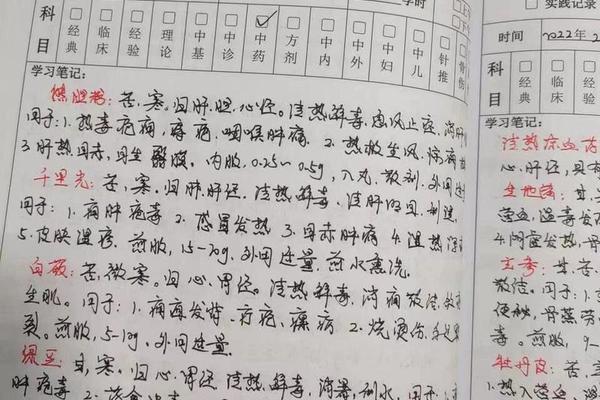 学时
科目 □经典 □临床 □经验 □理论 □中基 □中诊 ☑中药 □方剂 □中内 □中外 □中妇 □中儿 □针推
学习笔记:
熊胆粉: 苦、寒。归肝、胆、心经。清热解毒, 息风止痉, 清肝
用于: 1. 热毒疮痈, 痔疮, 咽喉肿痛 2. 热极生风, 惊痫
3 肝热目赤, 目生翳膜。内服, 0.25~0.5g, 入丸、散剂, 外用适
千里光: 苦, 寒。归肺、肝经。清热解毒、清肝明目、利湿。
用于: 1. 痈肿疮毒 2. 感冒发热 3. 目赤肿痛 4. 湿热
5. 皮肤湿疹。煎服, 15-30g, 外用适量, 煎水熏洗。
白蔹: 苦, 微寒。归心、胃经。清热解毒, 消痈散结, 敛疮
生肌。用于: 1. 痈疽发背, 疔疮, 瘰疬 2. 烧烫伤, 手足皲
裂。煎服, 5-10g, 外用适量。
绿豆: 甘, 寒。归心、胃经 清热解毒, 消暑, 利水。用于:
肿疮毒
□实践记录
时间 2022年2
科目 □经典 □临床 □经验
学习笔记:
清热凉血药
心、肝经, 具有
生地黄: 甘
营血, 温毒发
玄参: 甘、苦
散结。用于: 1.
便秘, 骨蒸劳
疬。煎服, 9-
牡丹皮: 苦、
1.热入营血, 温